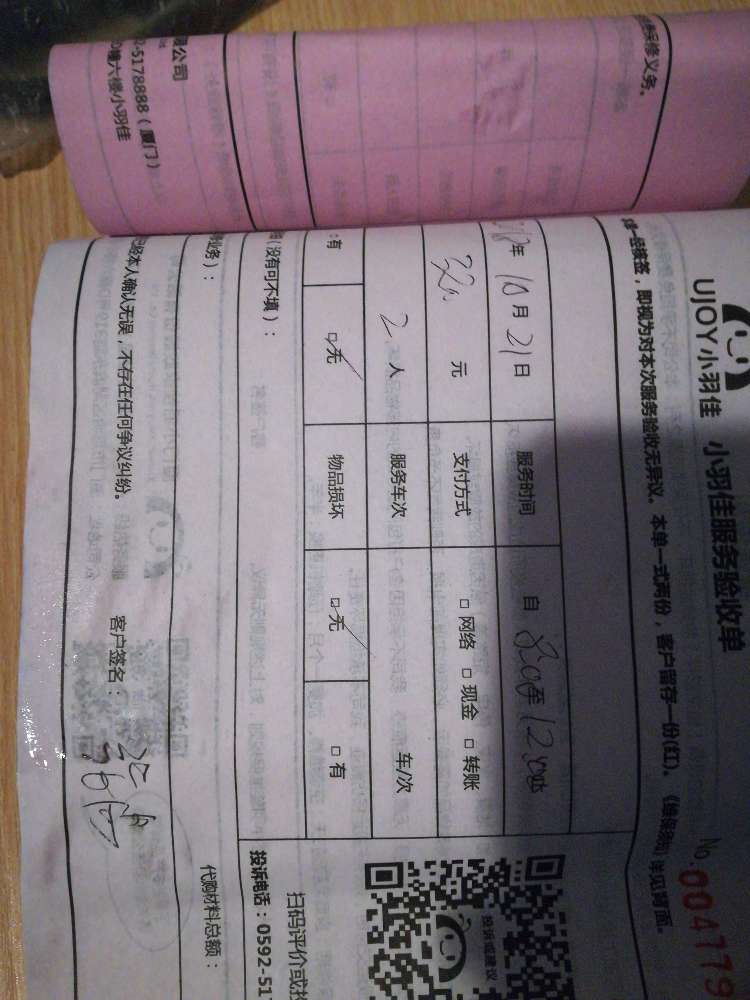 保修义务。
限公司
2-5178888（厦门）
0幢六楼小羽佳
UJOY小羽佳 小羽佳服务验收单
No.0047795
一经核签，即视为对本次服务验收无异议。本单一式两份，客户留存一份(红)。《维保须知》详见背面。
18年10月21日 服务时间 自8:00至12:00止
320元 支付方式 □网络 □现金 □转账
2人 服务车次 车/次
:有 □无 物品损坏 □无 □有
(没有可不填)：
务业务)：
代购材料总额：
投诉建议
扫码评价或投
投诉电话：0592-517
已经本人确认无误，不存在任何争议纠纷。 客户签名：